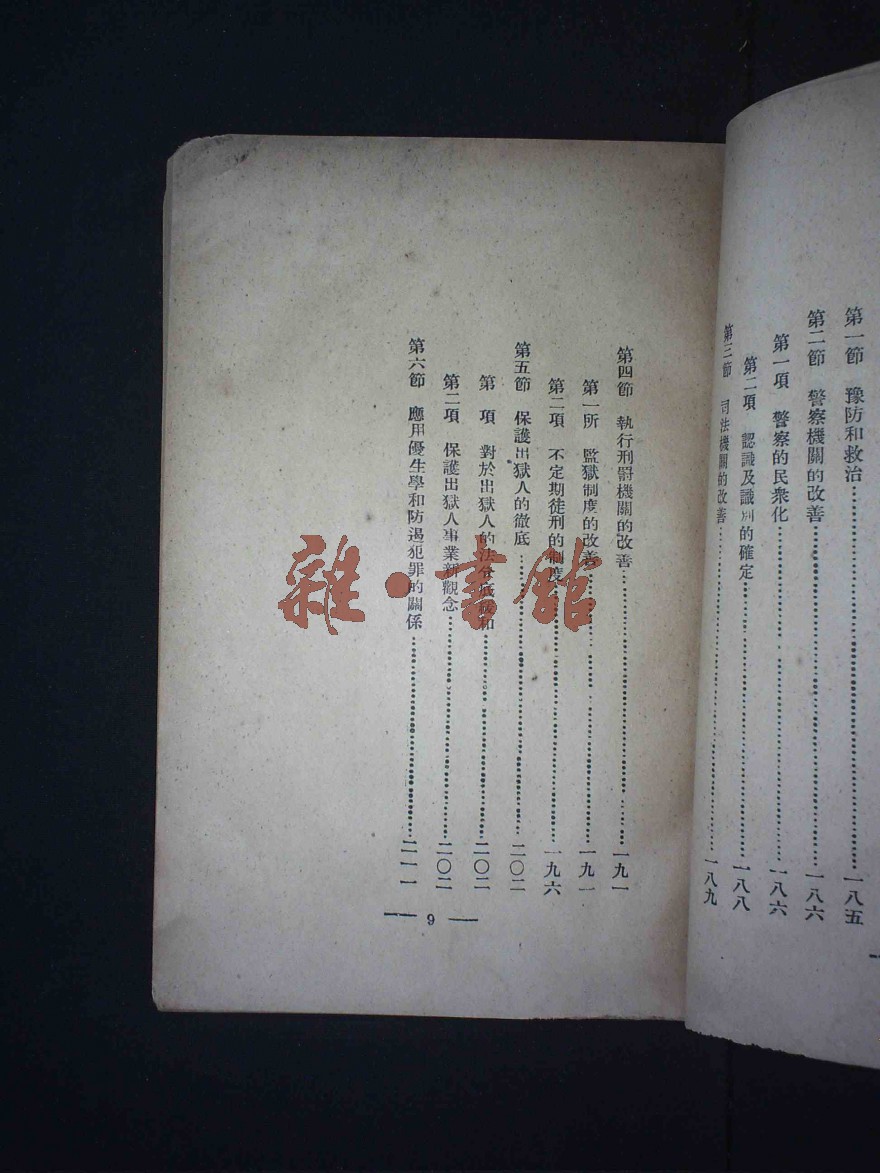 第一節　豫防和救治………一八五
第二節　警察機關的改善………一八六
第一項　警察的民衆化………一八六
第二項　認識及識別的確定………一八八
第三節　司法機關的改善………一八九
第四節　執行刑罰機關的改善………一九一
第一所　監獄制度的改善………一九一
第二項　不定期徒刑的制度………一九六
第五節　保護出獄人的徹底………二〇二
第　項　對於出獄人的法令底緩和………二〇二
第二項　保護出獄人事業新觀念………二〇二
第六節　應用優生學和防遏犯罪的關係………二一一
— 9 —
雜·書館